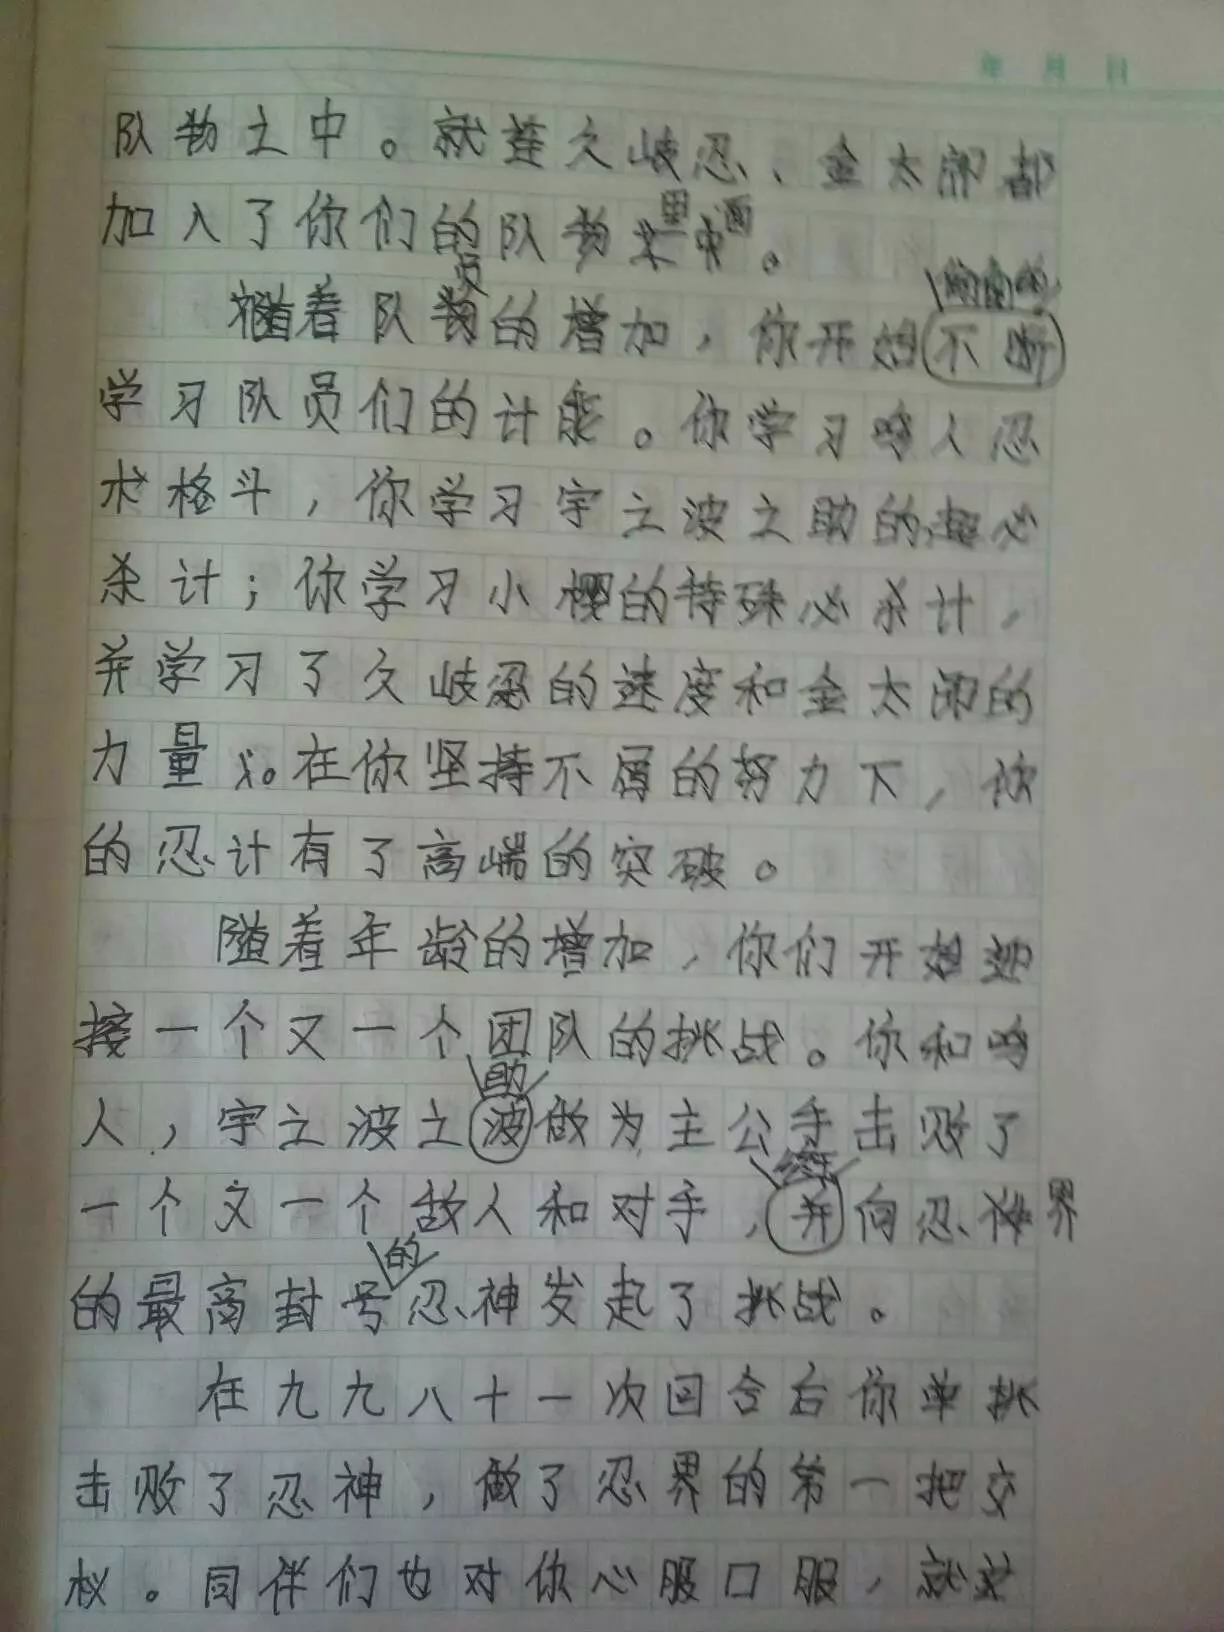 年 月 日
队物之中。就连文岐忍、金太郎都
加入了你们的队物里面。
随着队员的增加，你开始不断
学习队员们的计能。你学习鸣人忍
术格斗，你学习宇之波之助的超必
杀计；你学习小樱的特殊必杀计，
并学习了文岐忍的速度和金太郎的
力量。在你坚持不屑的努力下，你
的忍计有了高端的突破。
随着年龄的增加，你们开始迎
接一个又一个团队的挑战。你和鸣
助
人，宇之波之波做为主公手击败了
一个又一个敌人和对手，并向忍界
的
的最高封号忍神发起了挑战。
在九九八十一次回合后你单挑
击败了忍神，做了忍界的第一把交
权。同伴们也对你心服口服，就连